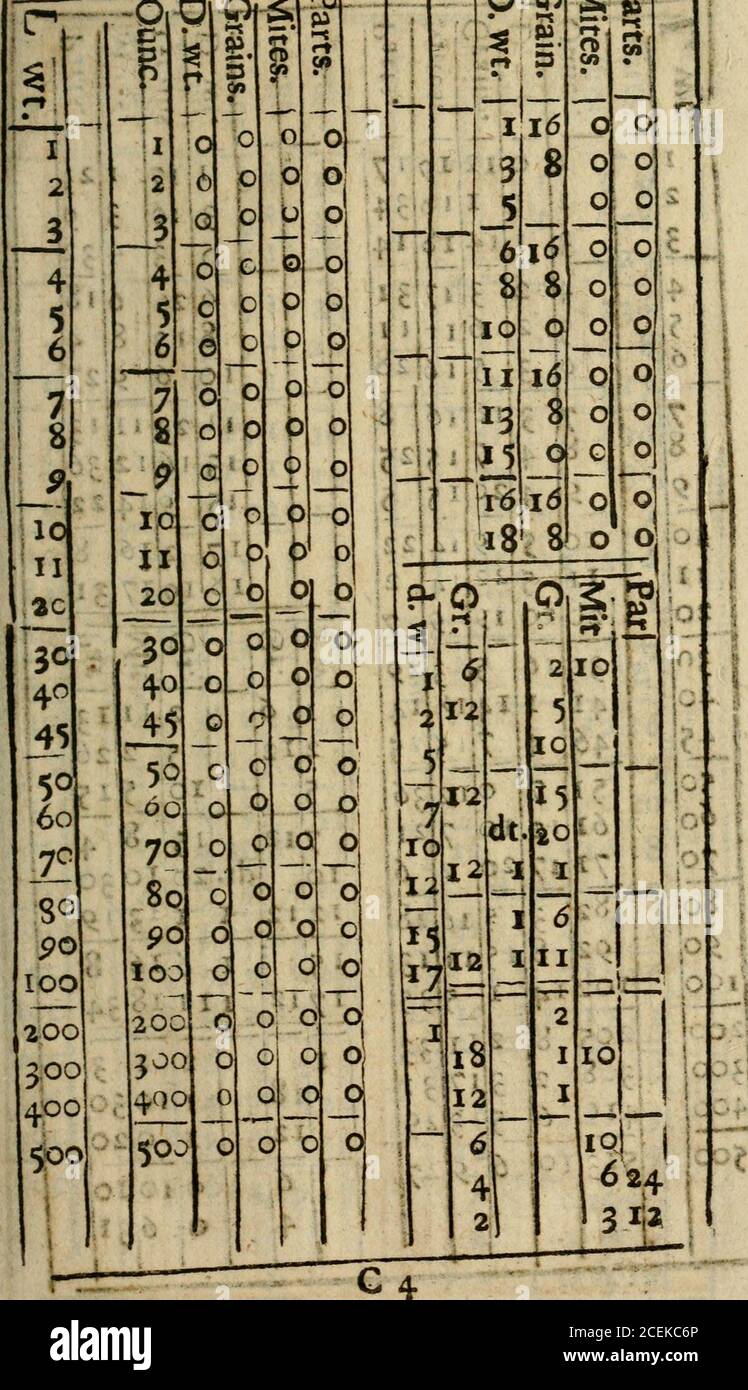 L. wt. Ounc. D. wt. Grains. Mites. Parts. D. wt. Grain. Mites. Parts.
1 1 0 0 0 0 1 16 0 0
2 2 0 0 0 0 3 8 0 0
3 3 0 0 0 0 5 0 0
4 4 0 0 0 0 6 16 0 0
5 5 0 0 0 0 8 8 0 0
6 6 0 0 0 0 10 0 0 0
7 7 0 0 0 0 11 16 0 0
8 8 0 0 0 0 13 8 0 0
9 9 0 0 0 0 15 0 0 0
10 10 0 0 0 0 16 16 0 0
11 11 0 0 0 0 18 8 0 0
20 20 0 0 0 0 d. w Gr. Gr. Mit Par
30 30 0 0 0 0 1 6 2 10
40 40 0 0 0 0 2 12 5
45 45 0 0 0 0 5 10
50 50 0 0 0 0 7 12 15
60 60 0 0 0 0 10 dt. 20
70 70 0 0 0 0 12 12 1 1
80 80 0 0 0 0 15 1 6
90 90 0 0 0 0 17 12 1 11
100 100 0 0 0 0
200 200 0 0 0 0 1 2
300 300 0 0 0 0 18 1 10
400 400 0 0 0 0 12 1
500 500 0 0 0 0 6 10
4 6 24
2 3 12
C 4
alamy
alamy
Image ID: 2CEKC6P
www.alamy.com